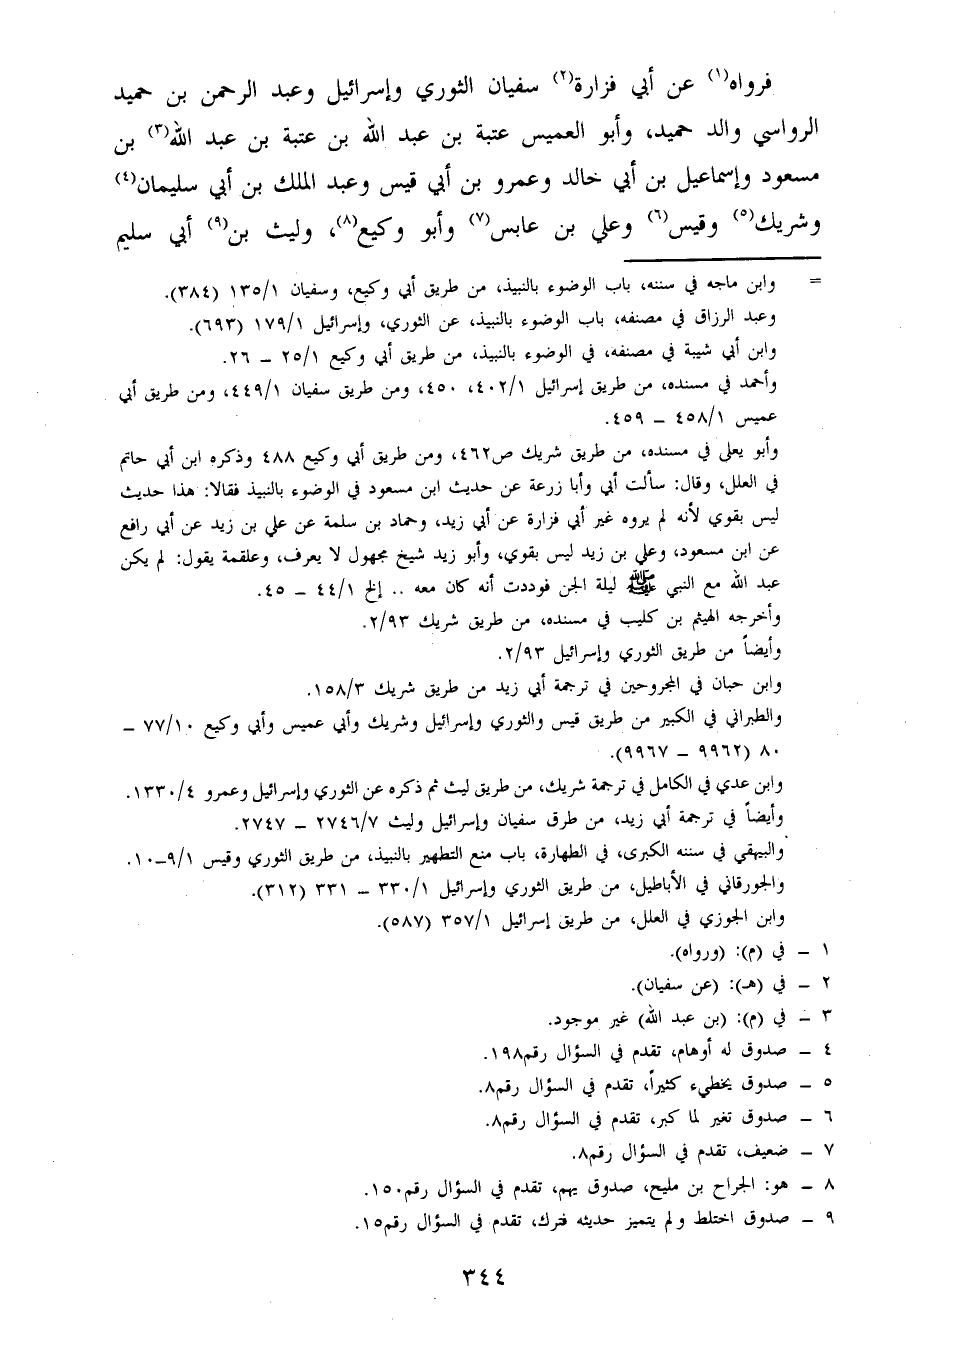 فرواه(١) عن أبي فزارة(٢) سفيان الثوري وإسرائيل وعبد الرحمن بن حميد
الرواسي والد حميد، وأبو العميس عتبة بن عبد الله بن عتبة بن عبد الله(٣) بن
مسعود وإسماعيل بن أبي خالد وعمرو بن أبي قيس وعبد الملك بن أبي سليمان(٤)
وشريك(٥) وقيس(٦) وعلي بن عابس(٧) وأبو وكيع(٨)، وليث بن(٩) أبي سليم
= وابن ماجه في سننه، باب الوضوء بالنبيذ، من طريق أبي وكيع، وسفيان ١٣٥/١ (٣٨٤).
وعبد الرزاق في مصنفه، باب الوضوء بالنبيذ، عن الثوري، وإسرائيل ١٧٩/١ (٦٩٣).
وابن أبي شيبة في مصنفه، في الوضوء بالنبيذ، من طريق أبي وكيع ٢٥/١ – ٢٦.
وأحمد في مسنده، من طريق إسرائيل ٤٠٢/١، ٤٥٠، ومن طريق سفيان ٤٤٩/١، ومن طريق أبي
عميس ٤٥٨/١ – ٤٥٩.
وأبو يعلى في مسنده، من طريق شريك ص٤٦٢، ومن طريق أبي وكيع ٤٨٨ وذكره ابن أبي حاتم
في العلل، وقال: سألت أبي وأبا زرعة عن حديث ابن مسعود في الوضوء بالنبيذ فقالا: هذا حديث
ليس بقوي لأنه لم يروه غير أبي فزارة عن أبي زيد، وحماد بن سلمة عن علي بن زيد عن أبي رافع
عن ابن مسعود، وعلي بن زيد ليس بقوي، وأبو زيد شيخ مجهول لا يعرف، وعلقمة يقول: لم يكن
عبد الله مع النبي ﷺ ليلة الجن فوددت أنه كان معه .. إلخ ٤٤/١ – ٤٥.
وأخرجه الهيثم بن كليب في مسنده، من طريق شريك ٢/٩٣.
وأيضاً من طريق الثوري وإسرائيل ٢/٩٣.
وابن حبان في المجروحين في ترجمة أبي زيد من طريق شريك ١٥٨/٣.
والطبراني في الكبير من طريق قيس والثوري وإسرائيل وشريك وأبي عميس وأبي وكيع ٧٧/١٠ –
٨٠ (٩٩٦٢ – ٩٩٦٧).
وابن عدي في الكامل في ترجمة شريك، من طريق ليث ثم ذكره عن الثوري وإسرائيل وعمرو ١٣٣٠/٤.
وأيضاً في ترجمة أبي زيد، من طرق سفيان وإسرائيل وليث ٢٧٤٦/٧ – ٢٧٤٧.
والبيهقي في سننه الكبرى، في الطهارة، باب منع التطهير بالنبيذ، من طريق الثوري وقيس ٩/١–١٠.
والجورقاني في الأباطيل، من طريق الثوري وإسرائيل ٣٣٠/١ – ٣٣١ (٣١٢).
وابن الجوزي في العلل، من طريق إسرائيل ٣٥٧/١ (٥٨٧).
١ – في (م): (ورواه).
٢ – في (هـ): (عن سفيان).
٣ – في (م): (بن عبد الله) غير موجود.
٤ – صدوق له أوهام، تقدم في السؤال رقم١٩٨.
٥ – صدوق يخطيء كثيراً، تقدم في السؤال رقم٨.
٦ – صدوق تغير لما كبر، تقدم في السؤال رقم٨.
٧ – ضعيف، تقدم في السؤال رقم٨.
٨ – هو: الجراح بن مليح، صدوق يهم، تقدم في السؤال رقم١٥٠.
٩ – صدوق اختلط ولم يتميز حديثه فترك، تقدم في السؤال رقم١٥.
٣٤٤